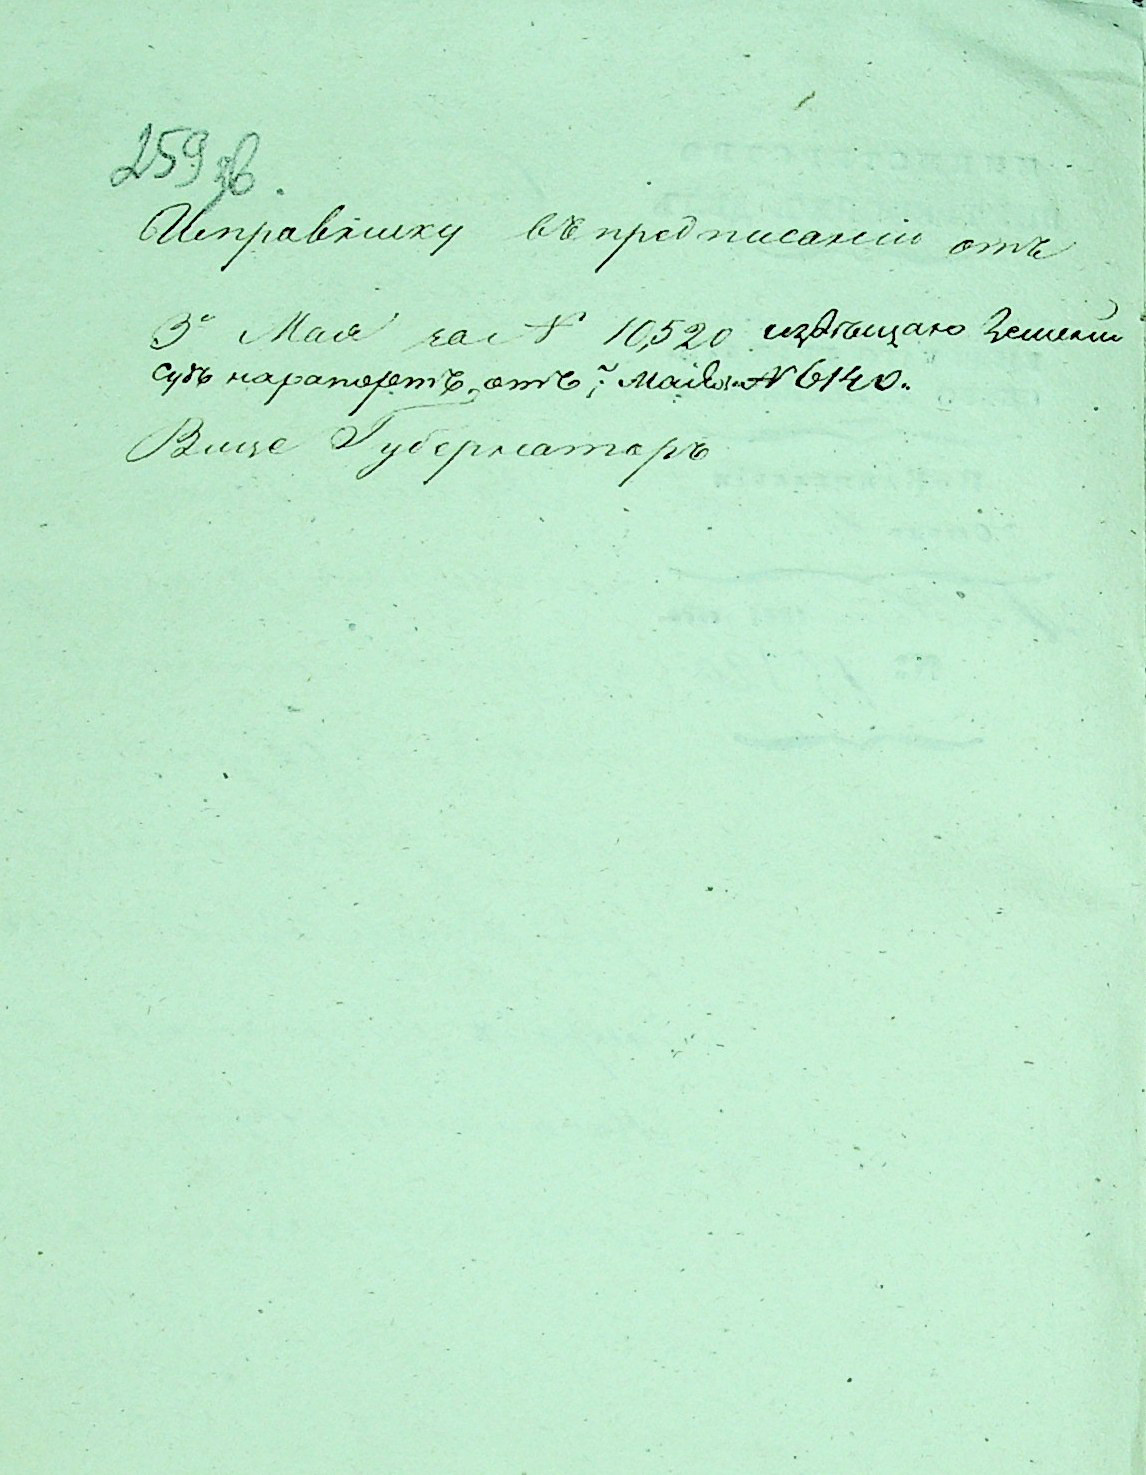 259 зв.
Исправнику въ предписаніи отъ
3го Мая за N 10,520 извѣщаю Земскій
судъ на рапортъ отъ Мая N 6140.
Вице Губернаторъ